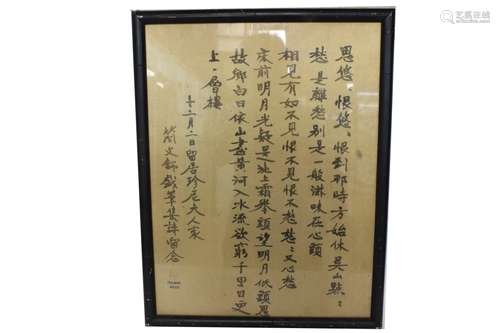 思悠、恨悠、恨到那時方始休吳山點：
愁是離愁別是一般淋味在心頭
相見有如不見恨不見恨不愁愁：又心愁
床前明月光疑是地上霜舉頭望明月低頭思
故鄉白日依山盡黃河入水流欲窮千里目更
上一層樓
十二月二日留居珍尼夫人家
文錦戲筆集詩留念
艺狐在线